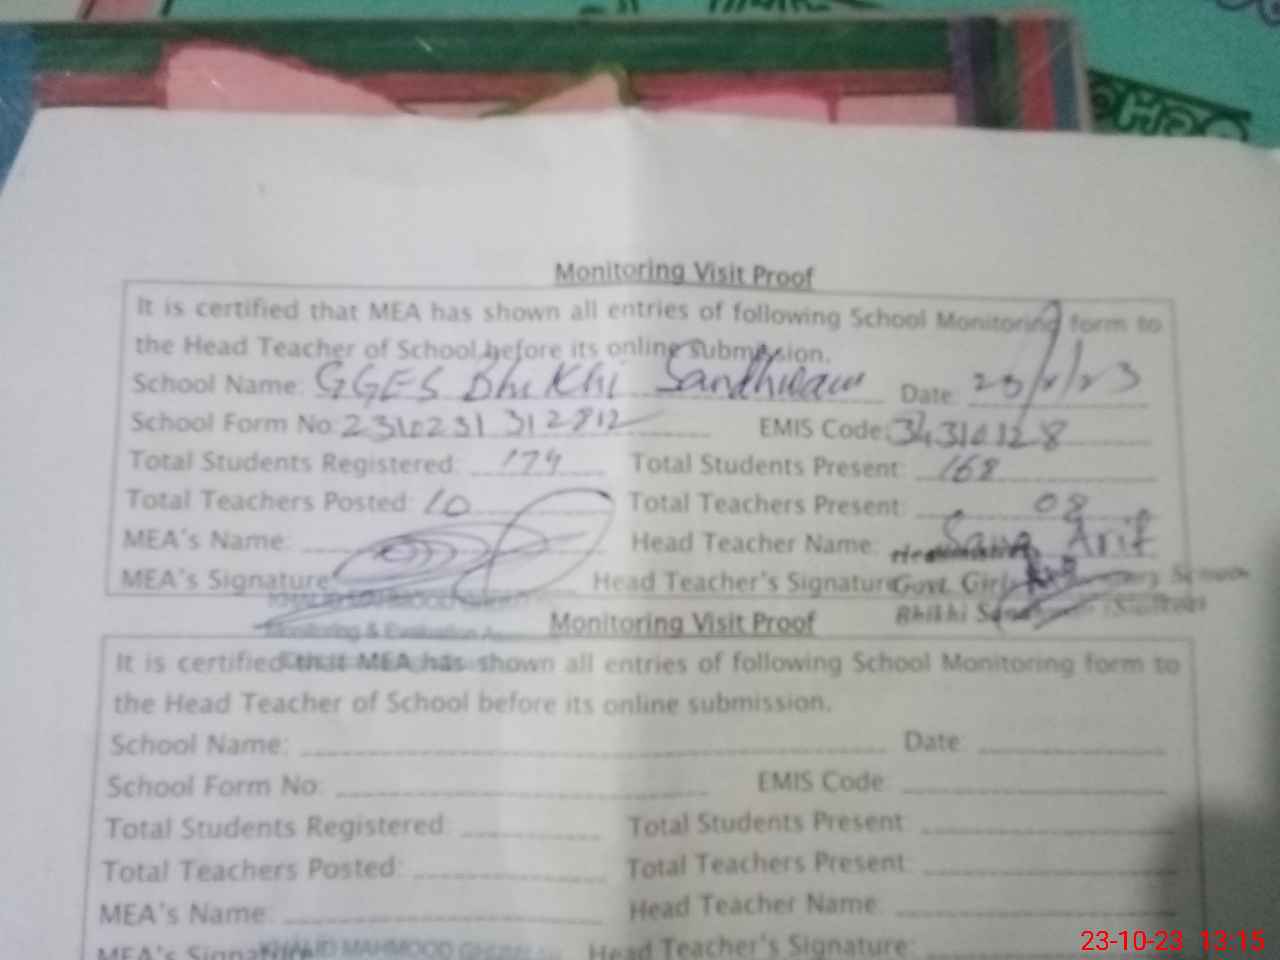 Monitoring Visit Proof
It is certified that MEA has shown all entries of following School Monitoring form to
the Head Teacher of School before its online submission.
School Name: GGES Bhikhi Sandhwan Date: 23/ /23
School Form No: 2310231312812 EMIS Code: 34310128
Total Students Registered: 174 Total Students Present: 168
Total Teachers Posted: 10 Total Teachers Present: 08
MEA's Name: Head Teacher Name: Arif
MEA's Signature Head Teacher's Signature Govt. Girls
KHALID MAHMOOD Bhikhi
Monitoring & Evaluation
Monitoring Visit Proof
It is certified that MEA has shown all entries of following School Monitoring form to
the Head Teacher of School before its online submission.
School Name: Date:
School Form No: EMIS Code:
Total Students Registered: Total Students Present:
Total Teachers Posted: Total Teachers Present:
MEA's Name: Head Teacher Name:
MEA's Signature KHALID MAHMOOD Head Teacher's Signature:
23-10-23 13:15